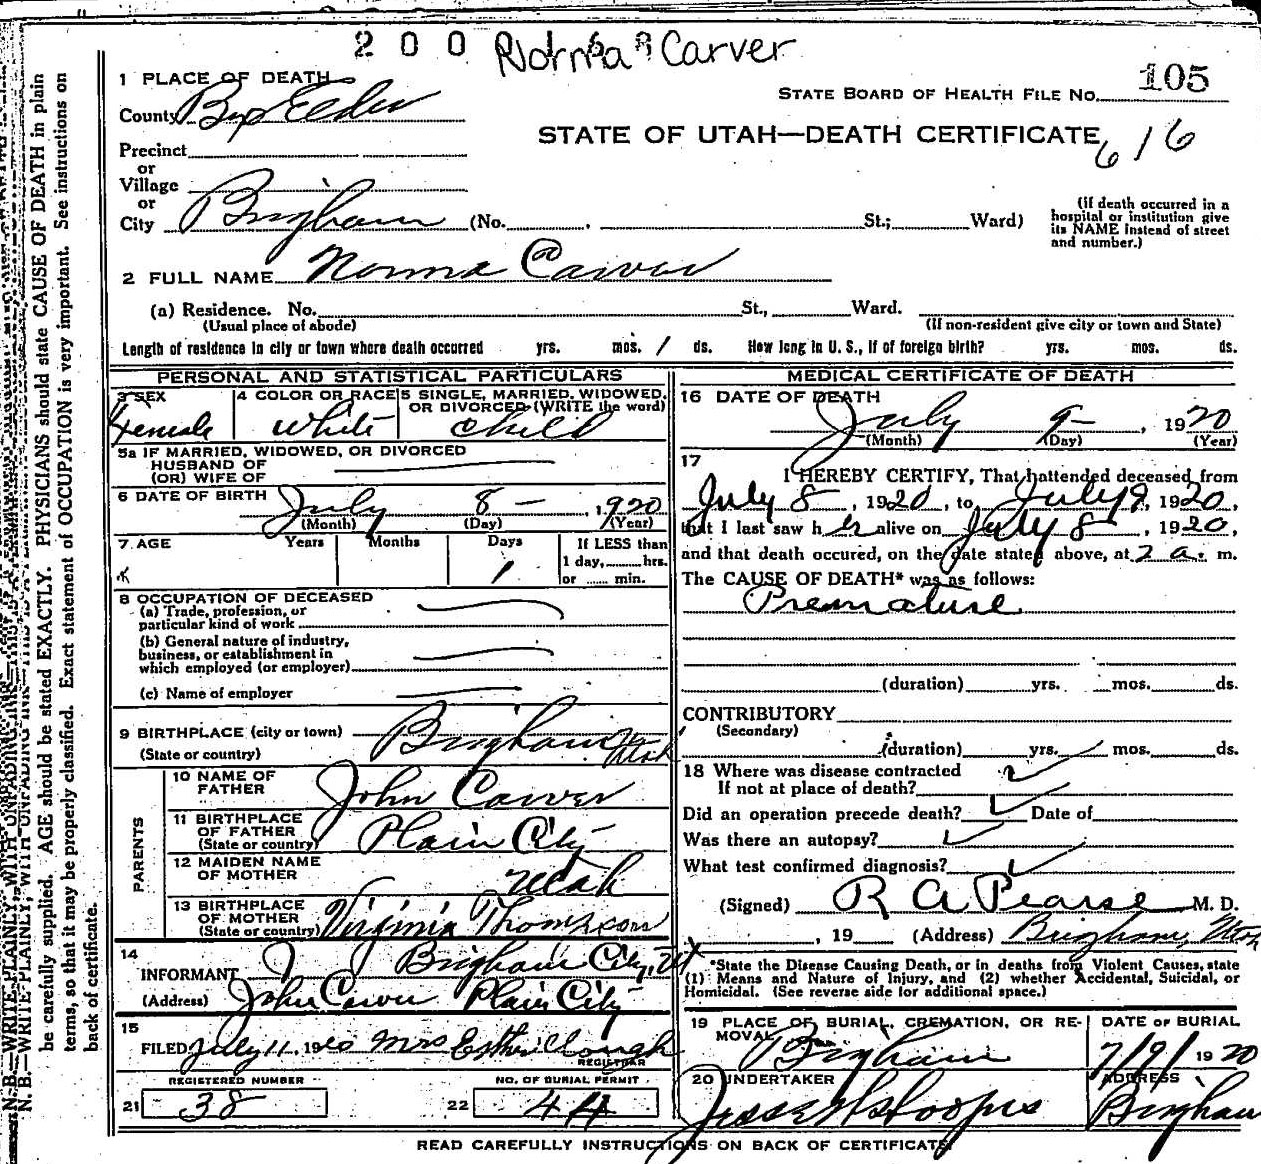 200 Norma Carver
1 PLACE OF DEATH
STATE BOARD OF HEALTH FILE NO. 105
County Box Elder
STATE OF UTAH—DEATH CERTIFICATE 616
Precinct
or
Village
or
City Brigham (No. , St.; Ward)
(If death occurred in a
hospital or institution give
its NAME instead of street
and number.)
2 FULL NAME Norma Carver
(a) Residence. No. St., Ward.
(Usual place of abode) (If non-resident give city or town and State)
Length of residence in city or town where death occurred yrs. mos. 1 ds. How long in U. S., if of foreign birth? yrs. mos. ds.
PERSONAL AND STATISTICAL PARTICULARS
3 SEX 4 COLOR OR RACE 5 SINGLE, MARRIED, WIDOWED,
OR DIVORCED (WRITE the word)
Female White Child
5a IF MARRIED, WIDOWED, OR DIVORCED
HUSBAND OF
(OR) WIFE OF
6 DATE OF BIRTH July 8 – , 1920
(Month) (Day) (Year)
7 AGE Years Months Days If LESS than
1 day, hrs.
or min.
1
8 OCCUPATION OF DECEASED
(a) Trade, profession, or
particular kind of work
(b) General nature of industry,
business, or establishment in
which employed (or employer)
(c) Name of employer
9 BIRTHPLACE (city or town) Brigham Utah
(State or country)
PARENTS
10 NAME OF
FATHER John Carver
11 BIRTHPLACE
OF FATHER
(State or country) Plain City
12 MAIDEN NAME
OF MOTHER Utah
13 BIRTHPLACE
OF MOTHER
(State or country) Virginia Thompson
14 Brigham City, Ut
INFORMANT
(Address) John Carver Plain City
15
FILED July 11, 1920 Mrs Esther Clough
REGISTRAR
REGISTERED NUMBER NO. OF BURIAL PERMIT
21 38 22 44
MEDICAL CERTIFICATE OF DEATH
16 DATE OF DEATH
July 9– , 1920
(Month) (Day) (Year)
17
I HEREBY CERTIFY, That I attended deceased from
July 8, 1920, to July 9, 1920,
that I last saw her alive on July 8, 1920,
and that death occured, on the date stated above, at 2 a. m.
The CAUSE OF DEATH* was as follows:
Premature
(duration) yrs. mos. ds.
CONTRIBUTORY
(Secondary)
(duration) yrs. mos. ds.
18 Where was disease contracted
If not at place of death?
Did an operation precede death? Date of
Was there an autopsy?
What test confirmed diagnosis?
(Signed) R A Pearse M. D.
, 19 (Address) Brigham, Utah
*State the Disease Causing Death, or in deaths from Violent Causes, state
(1) Means and Nature of Injury, and (2) whether Accidental, Suicidal, or
Homicidal. (See reverse side for additional space.)
19 PLACE OF BURIAL, CREMATION, OR RE-
MOVAL DATE OF BURIAL
Brigham 7/9/1920
20 UNDERTAKER ADDRESS
Brigham
READ CAREFULLY INSTRUCTIONS ON BACK OF CERTIFICATE.
N. B.—WRITE PLAINLY, WITH UNFADING INK—
be carefully supplied. AGE should be stated EXACTLY. PHYSICIANS should state CAUSE OF DEATH in plain
terms, so that it may be properly classified. Exact statement of OCCUPATION is very important. See instructions on
back of certificate.